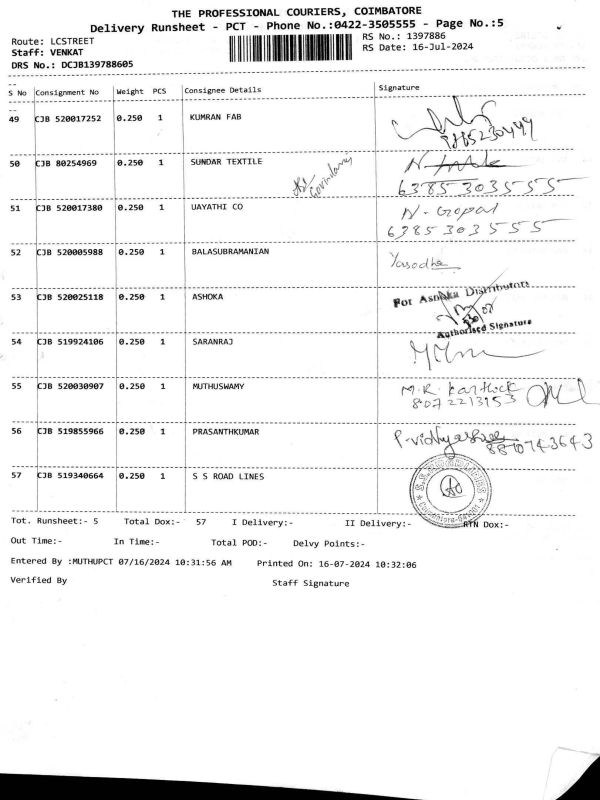 THE PROFESSIONAL COURIERS, COIMBATORE
Delivery Runsheet - PCT - Phone No.:0422-3505555 - Page No.:5
Route: LCSTREET RS No.: 1397886
Staff: VENKAT RS Date: 16-Jul-2024
DRS No.: DCJB139788605
S No Consignment No Weight PCS Consignee Details Signature
49 CJB 520017252 0.250 1 KUMRAN FAB
9865230449
50 CJB 80254969 0.250 1 SUNDAR TEXTILE
6385303555
51 CJB 520017380 0.250 1 UAYATHI CO N. Gopal
6385303555
52 CJB 520005988 0.250 1 BALASUBRAMANIAN Yasodha
53 CJB 520025118 0.250 1 ASHOKA For Ashoka Distributors
Authorised Signature
54 CJB 519924106 0.250 1 SARANRAJ
55 CJB 520030907 0.250 1 MUTHUSWAMY M.R.
8072213153
56 CJB 519855966 0.250 1 PRASANTHKUMAR
8870743643
57 CJB 519340664 0.250 1 S S ROAD LINES
Tot. Runsheet:- 5 Total Dox:- 57 I Delivery:- II Delivery:- RTN Dox:-
Out Time:- In Time:- Total POD:- Delvy Points:-
Entered By :MUTHUPCT 07/16/2024 10:31:56 AM Printed On: 16-07-2024 10:32:06
Verified By Staff Signature